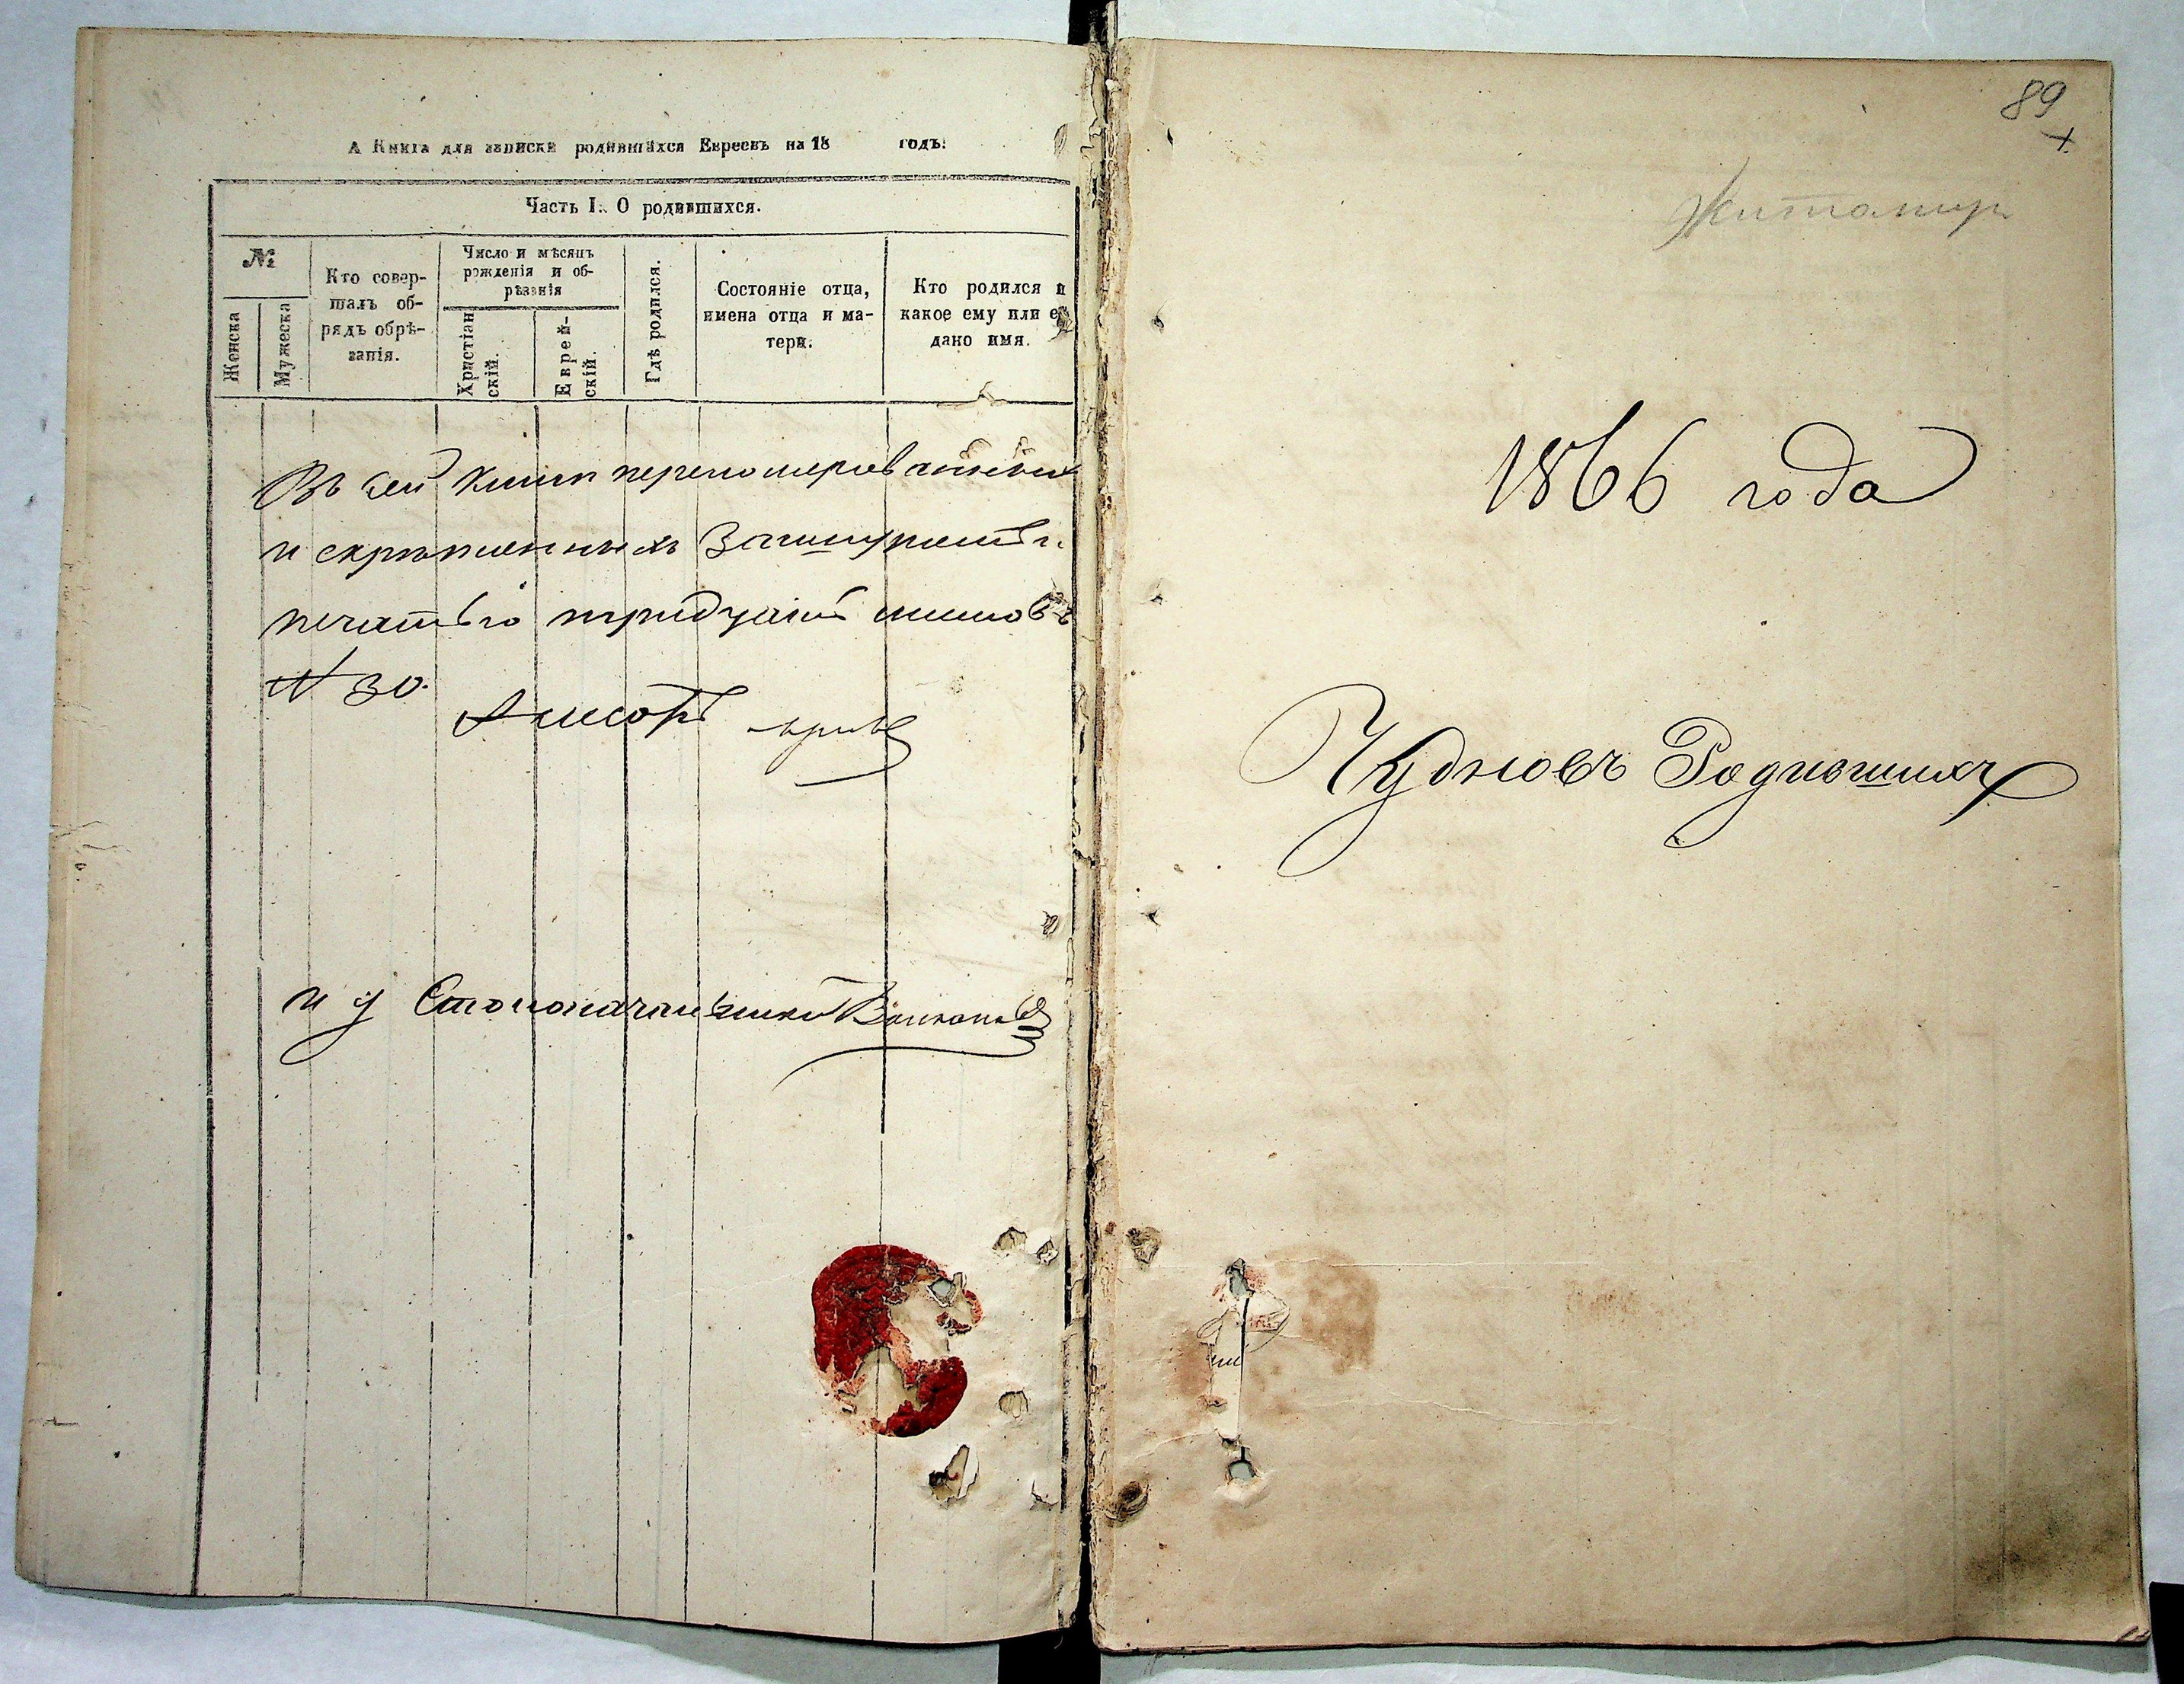 А Книга для записки родившихся Евреевъ на 18 годъ.
Часть I. О родившихся.
№
Женска
Мужеска
Кто совер-
шалъ об-
рядъ обрѣ-
занія.
Число и мѣсяцъ
рожденія и об-
рѣзанія
Христіан
скій.
Еврей-
скій.
Гдѣ родился.
Состояніе отца,
имена отца и ма-
тери.
Кто родился и
какое ему или ей
дано имя.
Въ сей книгѣ перенумерованныхъ
и скрѣпленныхъ За шнуромъ и
печатью тридцать листовъ
№ 30.
и д Столоначальника
89
Житомир
1866 года
Чудновъ Родившихъ